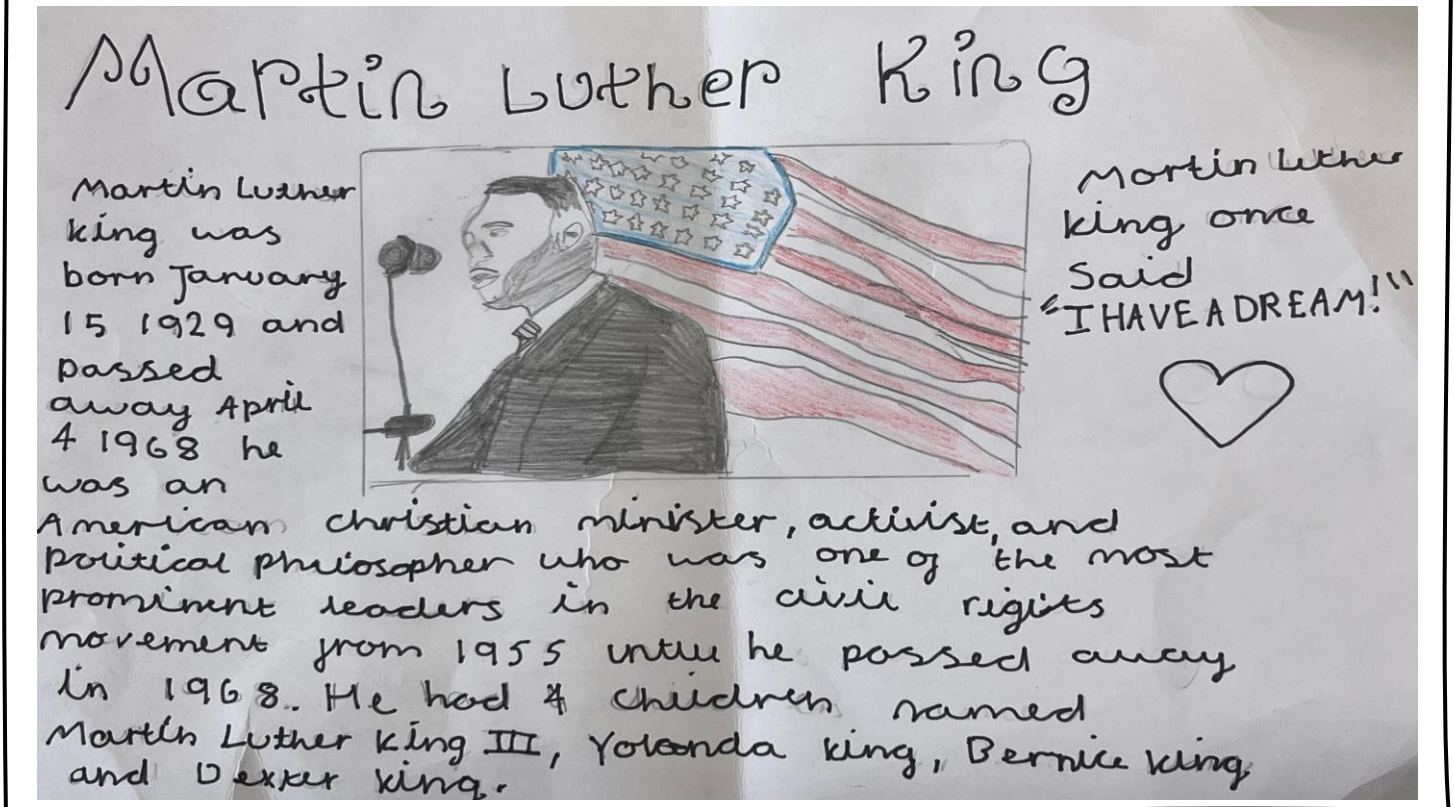 Martin Luther King
Martin Luther
king was
born January
15 1929 and
passed
away April
4 1968 he
was an
American christian minister, activist, and
political philosopher who was one of the most
prominent leaders in the civil rights
movement from 1955 until he passed away
in 1968. He had 4 children named
Martin Luther King III, Yolanda king, Bernice king
and Dexter king.
Martin Luther
king once
Said
"I HAVE A DREAM!"